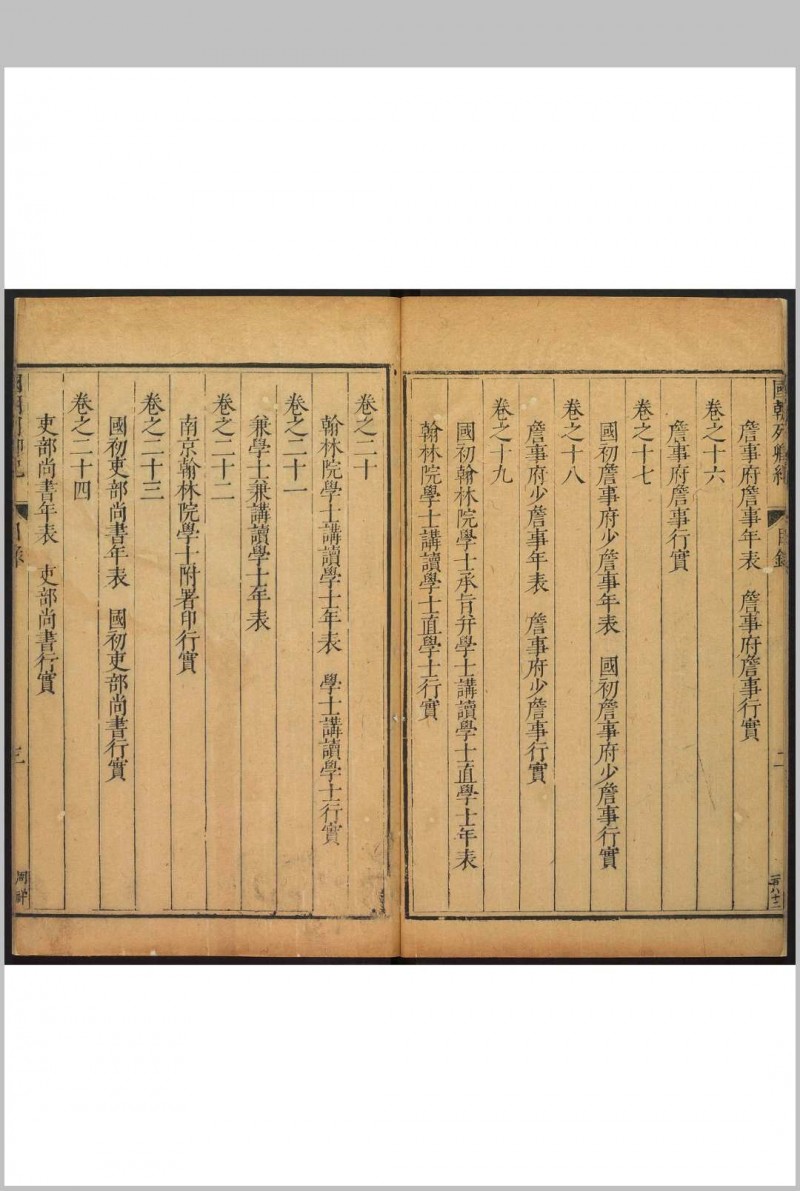 國朝列卿紀 目錄 二
詹事府詹事年表 詹事府詹事行實
卷之十六
詹事府詹事行實
卷之十七
國初詹事府少詹事年表 國初詹事府少詹事行實
卷之十八
詹事府少詹事年表 詹事府少詹事行實
卷之十九
國初翰林院學士承旨并學士講讀學士直學士年表
翰林院學士講讀學士直學士行實
卷之二十
翰林院學士講讀學士年表 學士講讀學士行實
卷之二十一
兼學士兼講讀學士年表
卷之二十二
南京翰林院學士附署印行實
卷之二十三
國初吏部尚書年表 國初吏部尚書行實
卷之二十四
吏部尚書年表 吏部尚書行實
三